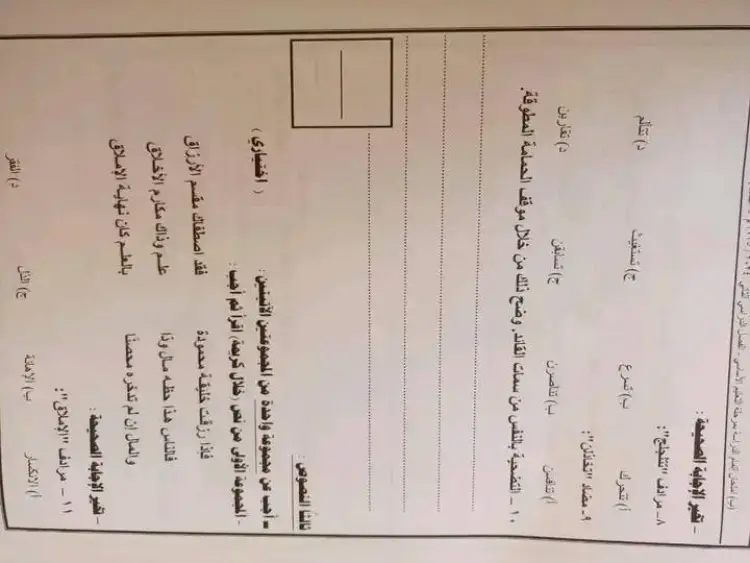 - تخير الإجابة الصحيحة :
٨- مرادف "تتلجلج":
أ) تتحرك ب) تسرع ج) تستغيث د) تتألم
٩- مضاد "تخاذلن":
أ) تنافسن ب) تناصرن ج) تسابقن د) تقاربن
١٠ - التضحية بالنفس من سمات القائد. وضح ذلك من خلال موقف الحمامة المطوقة.
ثالثا النصوص :
= أجب عن مجموعة واحدة من المجموعتين الآتيتين : ( اختياري )
- المجموعة الأولى من نص (خلال كريمة) اقرأ ثم أجب :
فإذا رزقت خليقة محمودة فقد اصطفاك مقسم الأرزاق
فالناس هذا حظه مال وذا علم وذاك مكارم الأخلاق
والمال إن لم تدخره محصنا بالعلم كان نهاية الإملاق
- تخير الإجابة الصحيحة :
١١ - مرادف "الإملاق":
أ) الانكسار ب) الإهانة ج) الذل د) الفقر